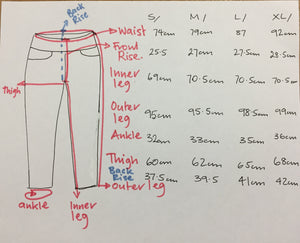 Back Rise S/ M/ L/ XL/
Waist 74cm 79cm 87 92cm
Front Rise. 25.5 27cm 27.5cm 28.5cm
Inner leg 69cm 70.5cm 70.5cm 70.5cm
Outer leg 95cm 95.5cm 98.5cm 99cm
Ankle 32cm 33cm 35cm 36cm
Thigh 60cm 62cm 65cm 68cm
Back Rise 37.5cm 39.5 41cm 42cm
Thigh
outer leg
ankle
Inner leg